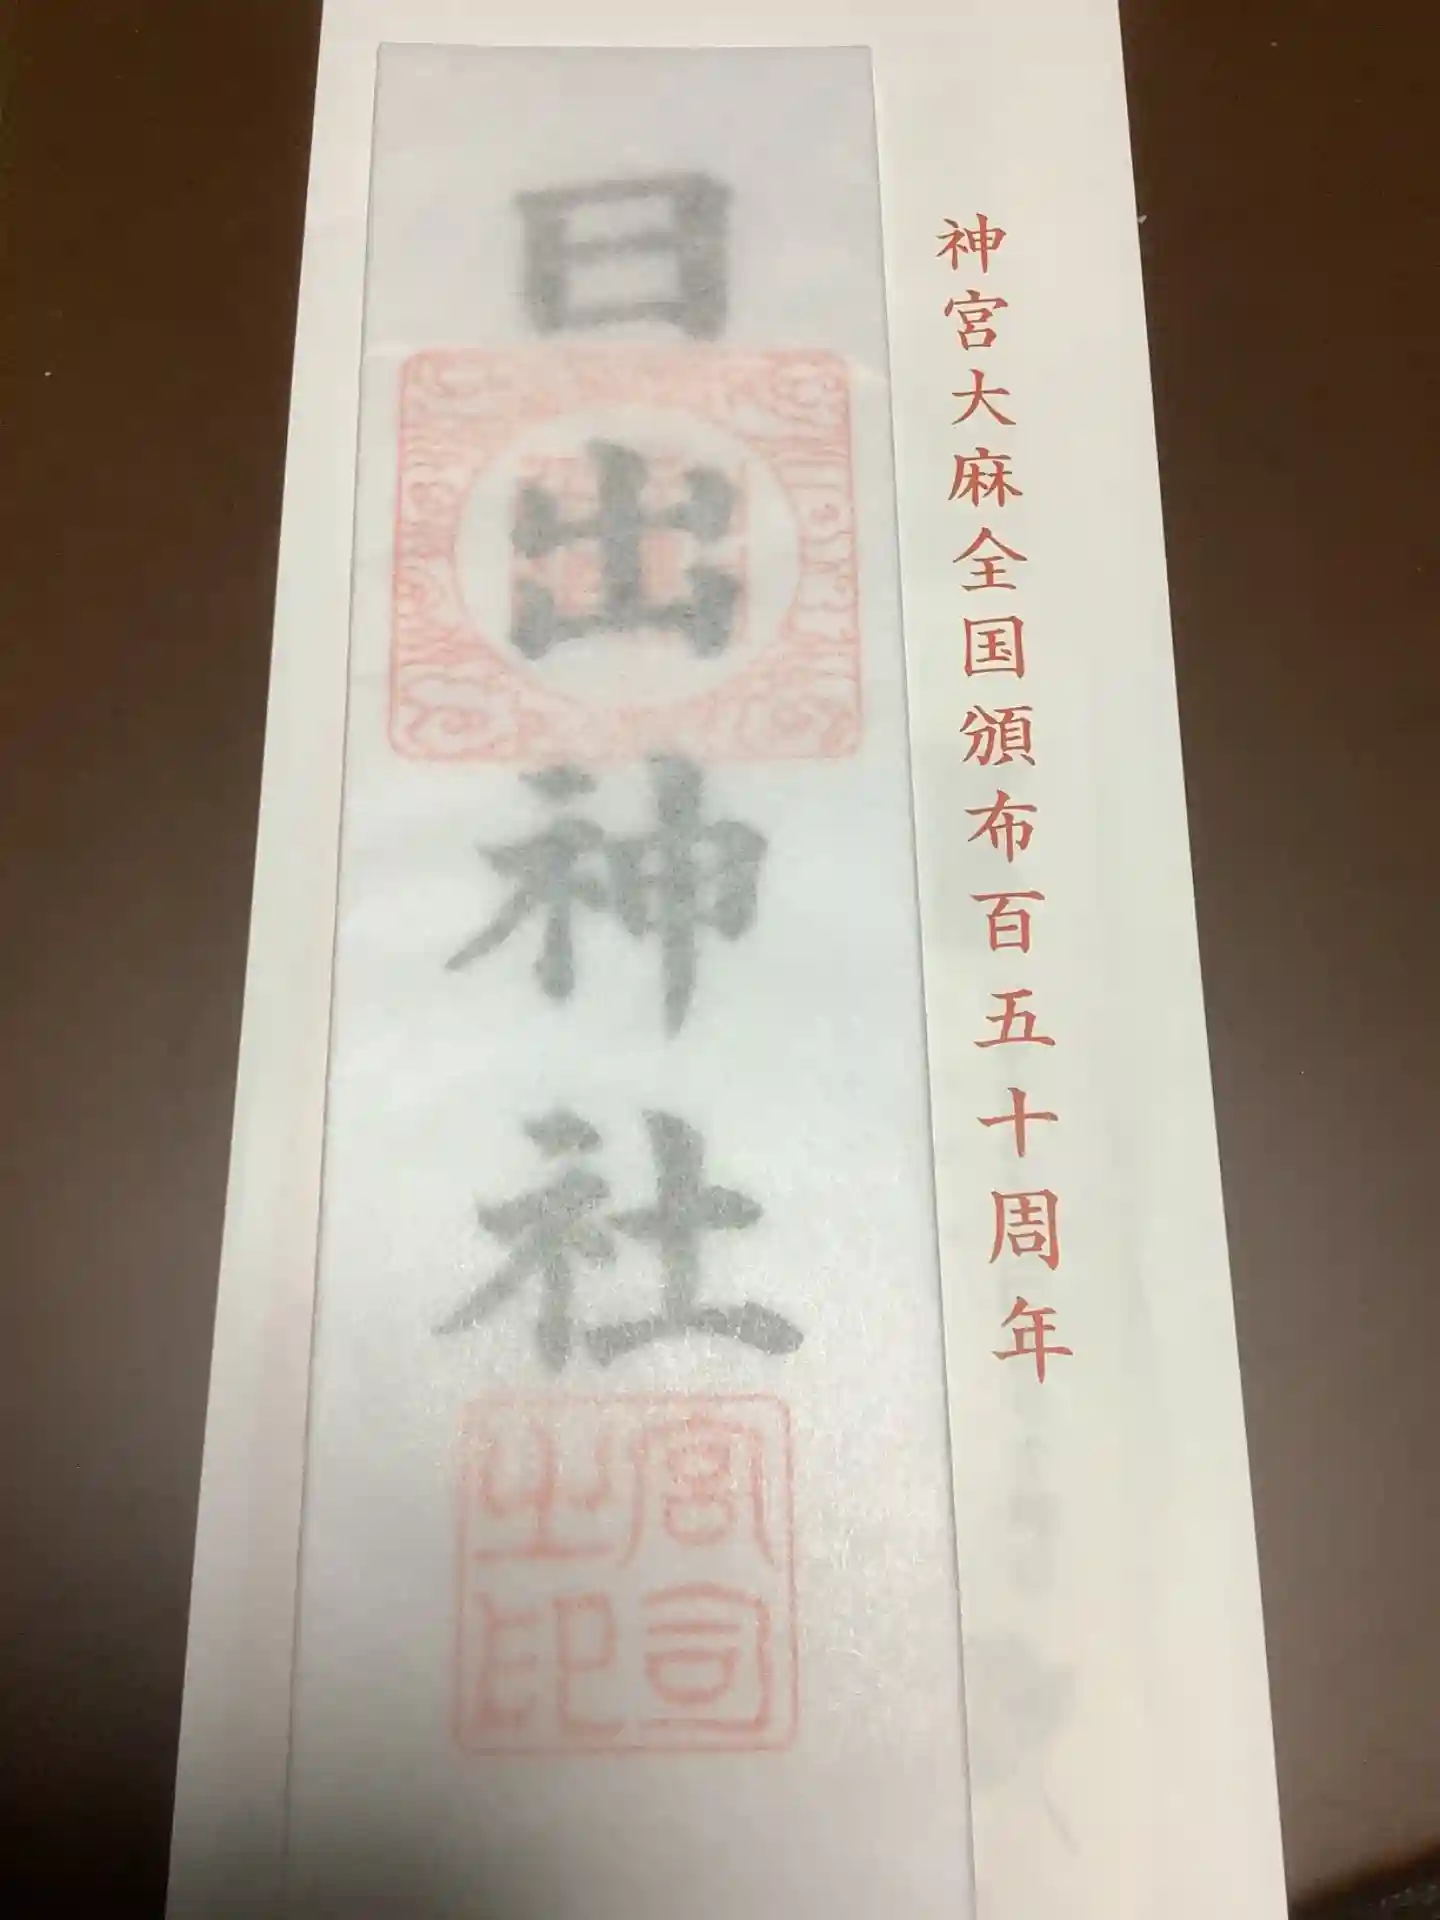 神宮大麻全国頒布百五十周年
日出神社
宮司之印